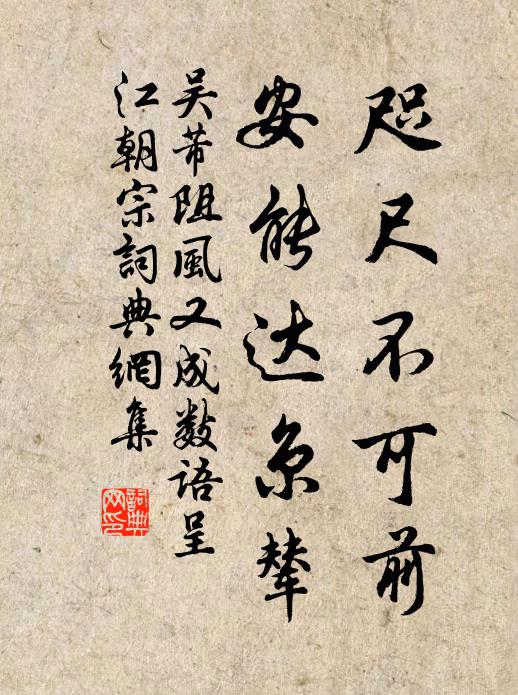 咫尺不可前
安能达京辇
吴芾阻風又成数语呈
江朝宗詞典網集
詞典
网印